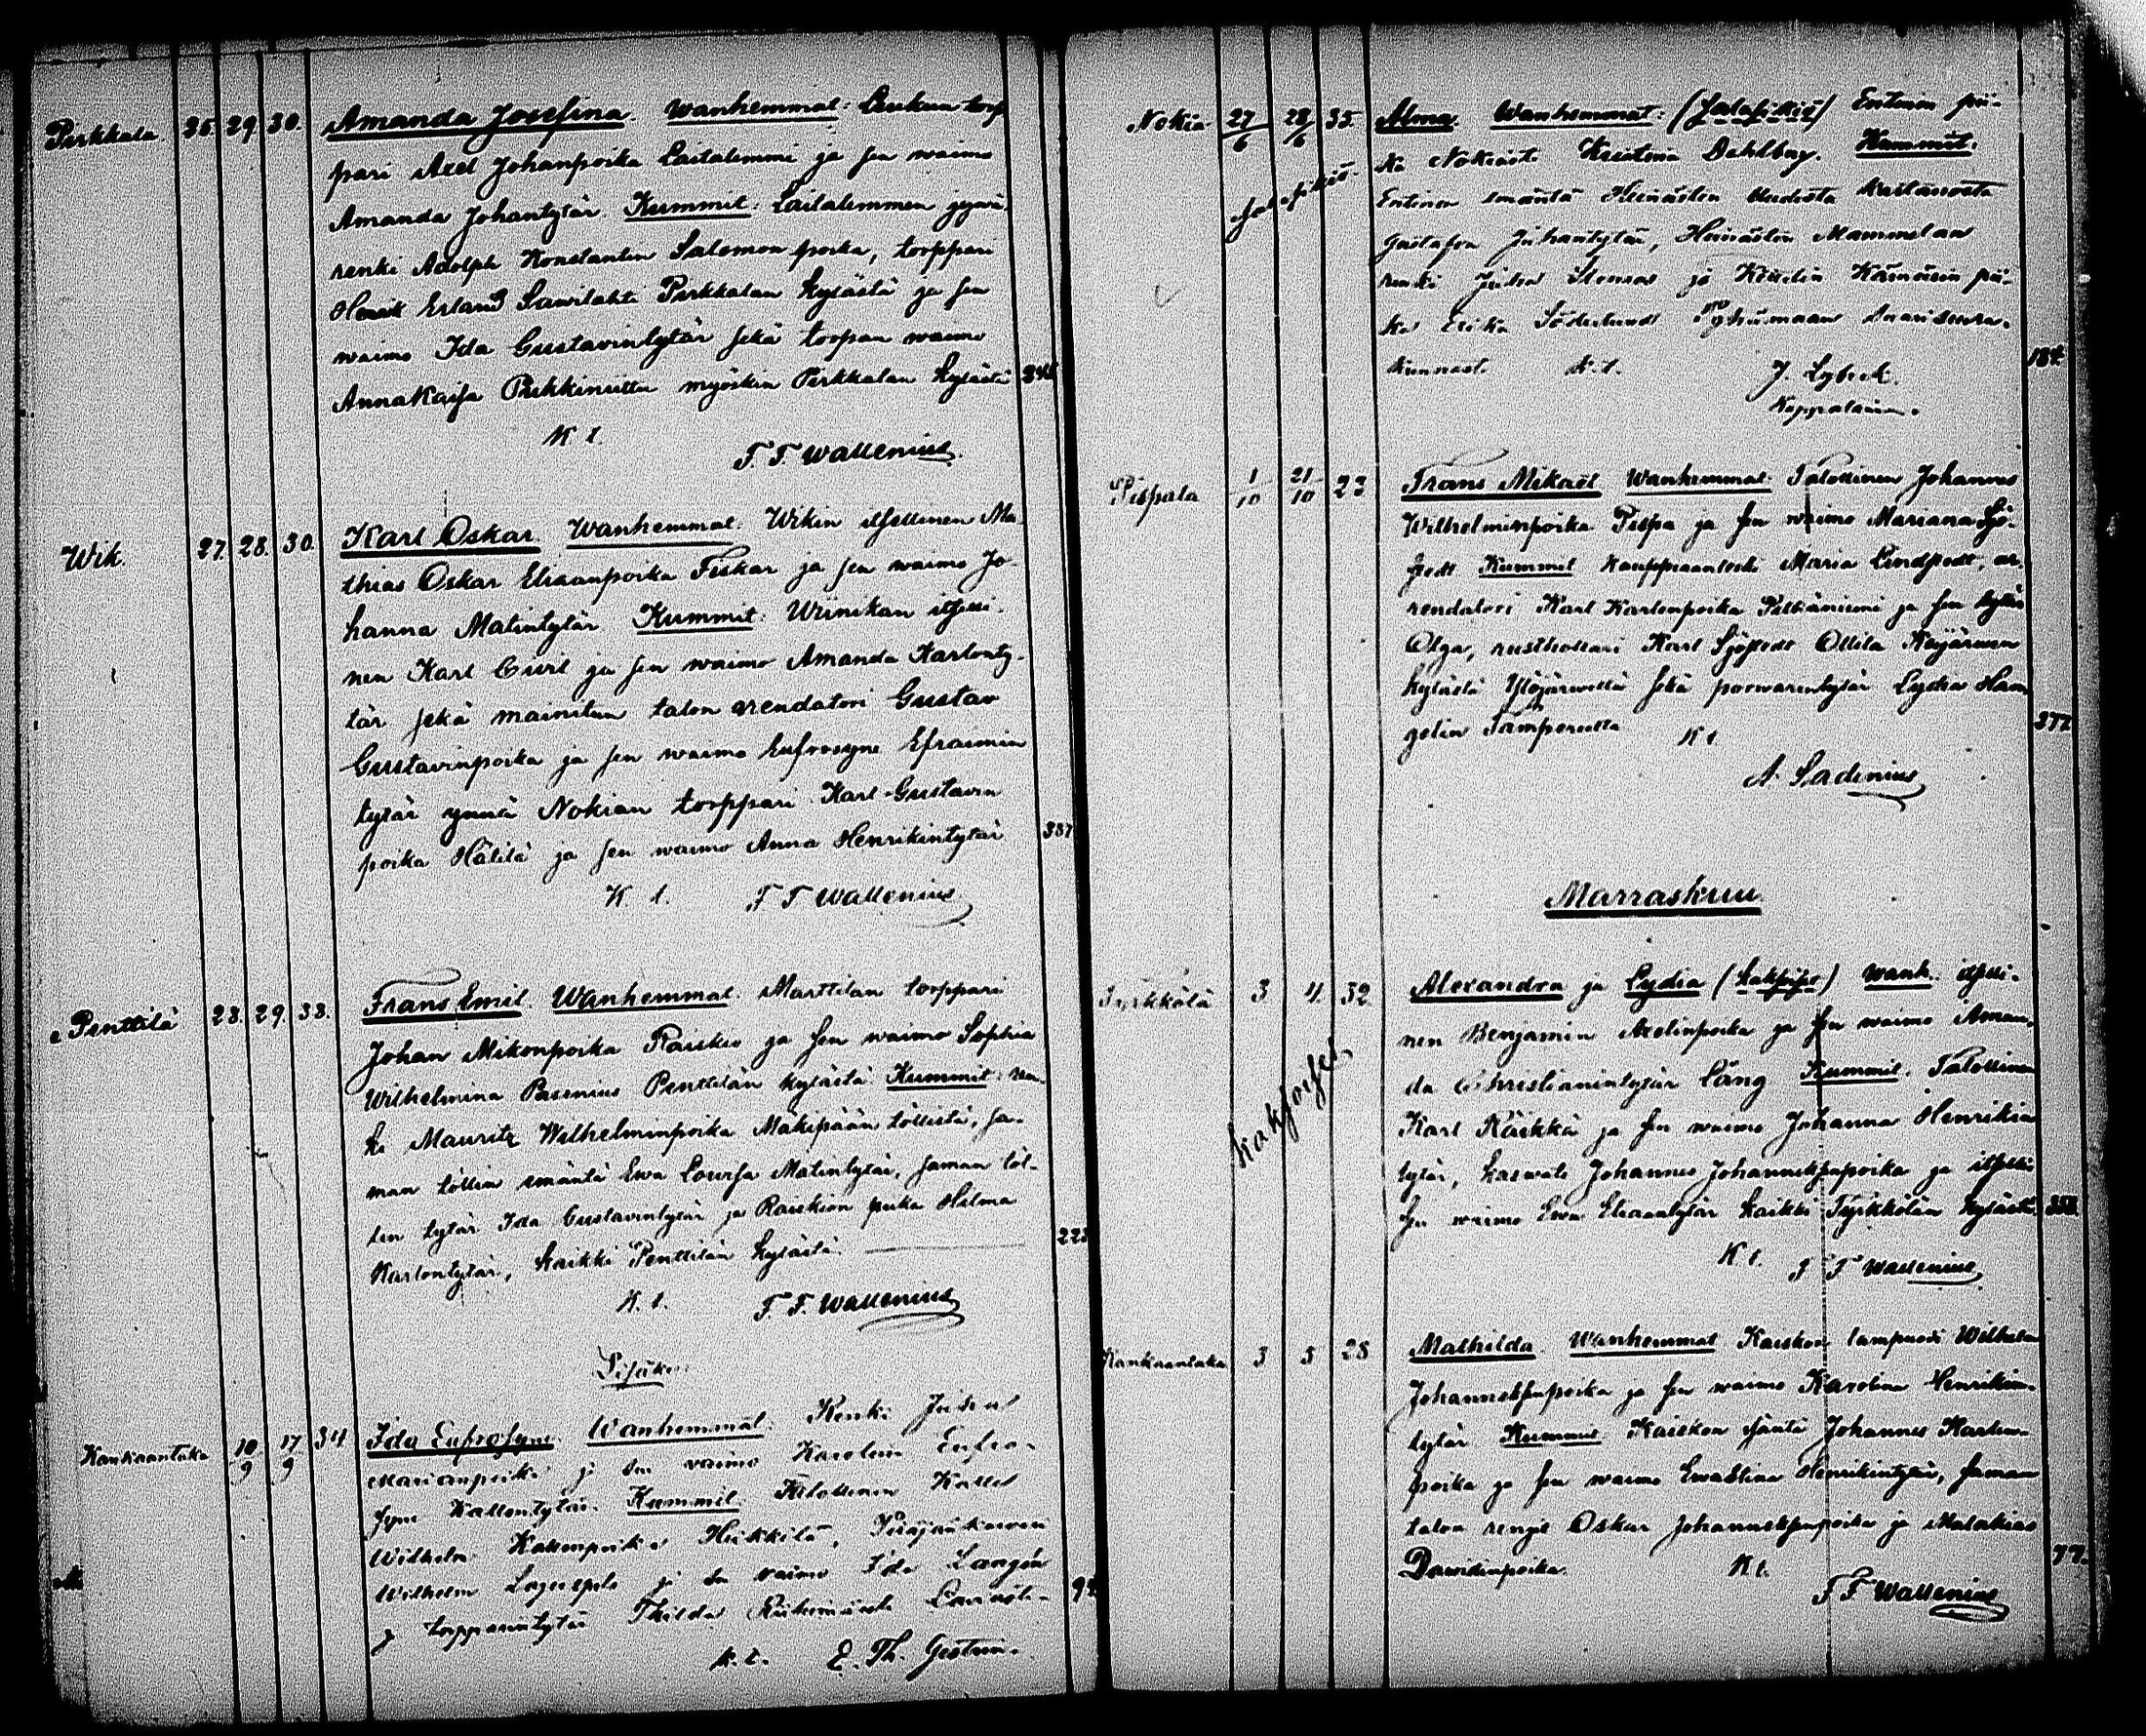 Pirkkala. 25. 29. 30. Amanda Josefina. Wanhemmat: torp
pari Axel Johanpoika Laitalemmi ja sen waimo
Amanda Johantytär. Kummit: Laitalemmen
renki Adolph Konstantin Salomonpoika, torppari
Henrik Erland Sawilahti Pirkkalan kylästä ja sen
waimo Ida Gustavintytär sekä torpan waimo
Annakaisa myöskin Pirkkalan kylästä
K. t.
F. F. Wallenius.
Wik. 27. 28. 30. Karl Oskar. Wanhemmat: Wikin itsellinen Ma-
thias Oskar Eliaanpoika Fiskar ja sen waimo Jo-
hanna Matintytär. Kummit: Wiinikan itselli-
nen Karl ja sen waimo Amanda Karlonty-
tär sekä mainitun talon arendatori Gustav
Gustavinpoika ja sen waimo Eufrosyne Efraimin
tytär ynnä Nokian torppari Karl Gustavin
poika Hälilä ja sen waimo Anna Henrikintytär 337
K. t. F. F. Wallenius
Penttilä 28. 29. 33. Frans Emil. Wanhemmat: Marttilan torppari
Johan Mikonpoika Raiskio ja sen waimo Sophia
Wilhelmina Pasenius Penttilän kylästä. Kummit: ren-
ki Mauritz Wilhelminpoika Mäkipään töllistä, sa-
man töllin emäntä Ewa Lowisa Matintytär, saman töl-
lin tytär Ida Gustavintytär ja Raiskion piika Hilma
Karlontytär, kaikki Penttilän kylästä.
K. t. F. F. Wallenius
Lisäke:
Kankaantaka 10/9 17/9 34 Ida Eufrosyne. Wanhemmat: Renki Juha
Marianpoika ja sen vaimo Karolina Eufro-
syne Kallentytär. Kummit: Talollinen Kalle
Wilhelm Kallenpoika Heikkilä,
Wilhelm ja sen vaimo Ida Langén
ja torpparintytär Thilda
K. t. E. Th. Gestrin.
Nokia 27/6 28/6 35. Alma. Wanhemmat: (Salasikiö) Entinen pii-
ka Nokiasta Kristina Dahlberg. Kummit:
Salasikiö
Entinen emäntä
Gustafva Juhantytär,
renki Juha ja pii-
ka Erika Söderlund Pyhämaan saariseura-
kunnasta K. t. J. Lybeck. 184.
Kappalainen.
Pispala 1/10 21/10 23 Frans Mikaël Wanhemmat: Talollinen Johannes
Wilhelminpoika Pispa ja sen waimo Mariana Sjö-
stedt. Kummit: Maria Lindstedt, ar-
rendatori Karl Karlonpoika Pättiniemi ja sen tytär
Olga, rusthollari Karl Sjöstedt Ollila Keijärwen
kylästä Ylöjärwellä sekä porwarintytär Lydia Han
gelin Tampereelta. 377
K. t.
A. Ladenius
Marraskuu.
Tyrkkölä 3 4. 32. Alexandra ja Lydia (kaksoiset) Wanh. itselli-
nen Benjamin Axelinpoika ja sen waimo Aman-
da Christianintytär Lång. Kummit: Talollinen
Kaksoiset
Karl Räikkä ja sen waimo Johanna Henrikin
tytär, kaswatti Johannes Johanneksenpoika ja itselli
sen waimo Ewa Eliaantytär kaikki Tyrkkölän kylästä. 358.
K. t. F. F. Wallenius
Kankaantaka 3 5 28 Mathilda. Wanhemmat Kaiskon lampuodi Wilhelm
Johanneksenpoika ja sen waimo Karolina Henrikin-
tytär. Kummit Kaiskon isäntä Johannes Karlon-
poika ja sen waimo Ewastina Henrikintytär, saman
talon rengit Oskar Johanneksenpoika ja Malakias
Dawidinpoika. K t. 77.
F F Wallenius